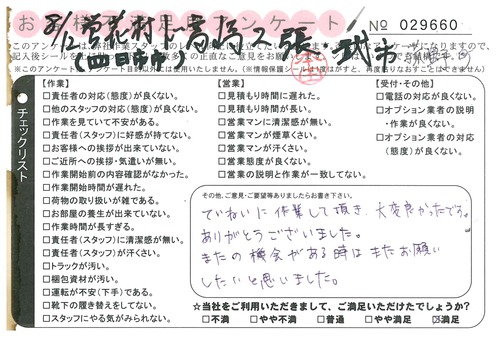 お客様満足度アンケート
№ 029660
8/12
(四日市市)
このアンケートは
記入後シールを
※このアンケート
チェックリスト
【作業】
□責任者の対応(態度)が良くない。
□他のスタッフの対応(態度)が良くない。
□作業を見ていて不安がある。
□責任者(スタッフ)に好感が持てない。
□お客様への挨拶が出来ていない。
□ご近所への挨拶・気遣いが無い。
□作業開始前の内容確認がなかった。
□作業開始時間が遅れた。
□荷物の取り扱いが雑である。
□お部屋の養生が出来ていない。
□作業時間が長すぎる。
□責任者(スタッフ)に清潔感が無い。
□責任者(スタッフ)が汗くさい。
□トラックが汚い。
□梱包資材が汚い。
□運転が不安(下手)である。
□靴下の履き替えをしてない。
□スタッフにやる気がみられない。
【営業】
□見積もり時間に遅れた。
□見積もり時間が長い。
□営業マンに清潔感が無い。
□営業マンが煙草くさい。
□営業マンが汗くさい。
□営業態度が良くない。
□営業の説明と作業が一致してない。
【受付・その他】
□電話の対応が良くない。
□オプション業者の説明
・作業が良くない。
□オプション業者の対応
(態度)が良くない。
その他、ご意見・ご要望等ありましたらお書き下さい。
ていねいに作業して頂き、大変良かったです。
ありがとうございました。
またの機会がある時はまたお願い
したいと思いました。
☆当社をご利用いただきまして、ご満足いただけたでしょうか?
□不満 □やや不満 □普通 □やや満足 ☑満足